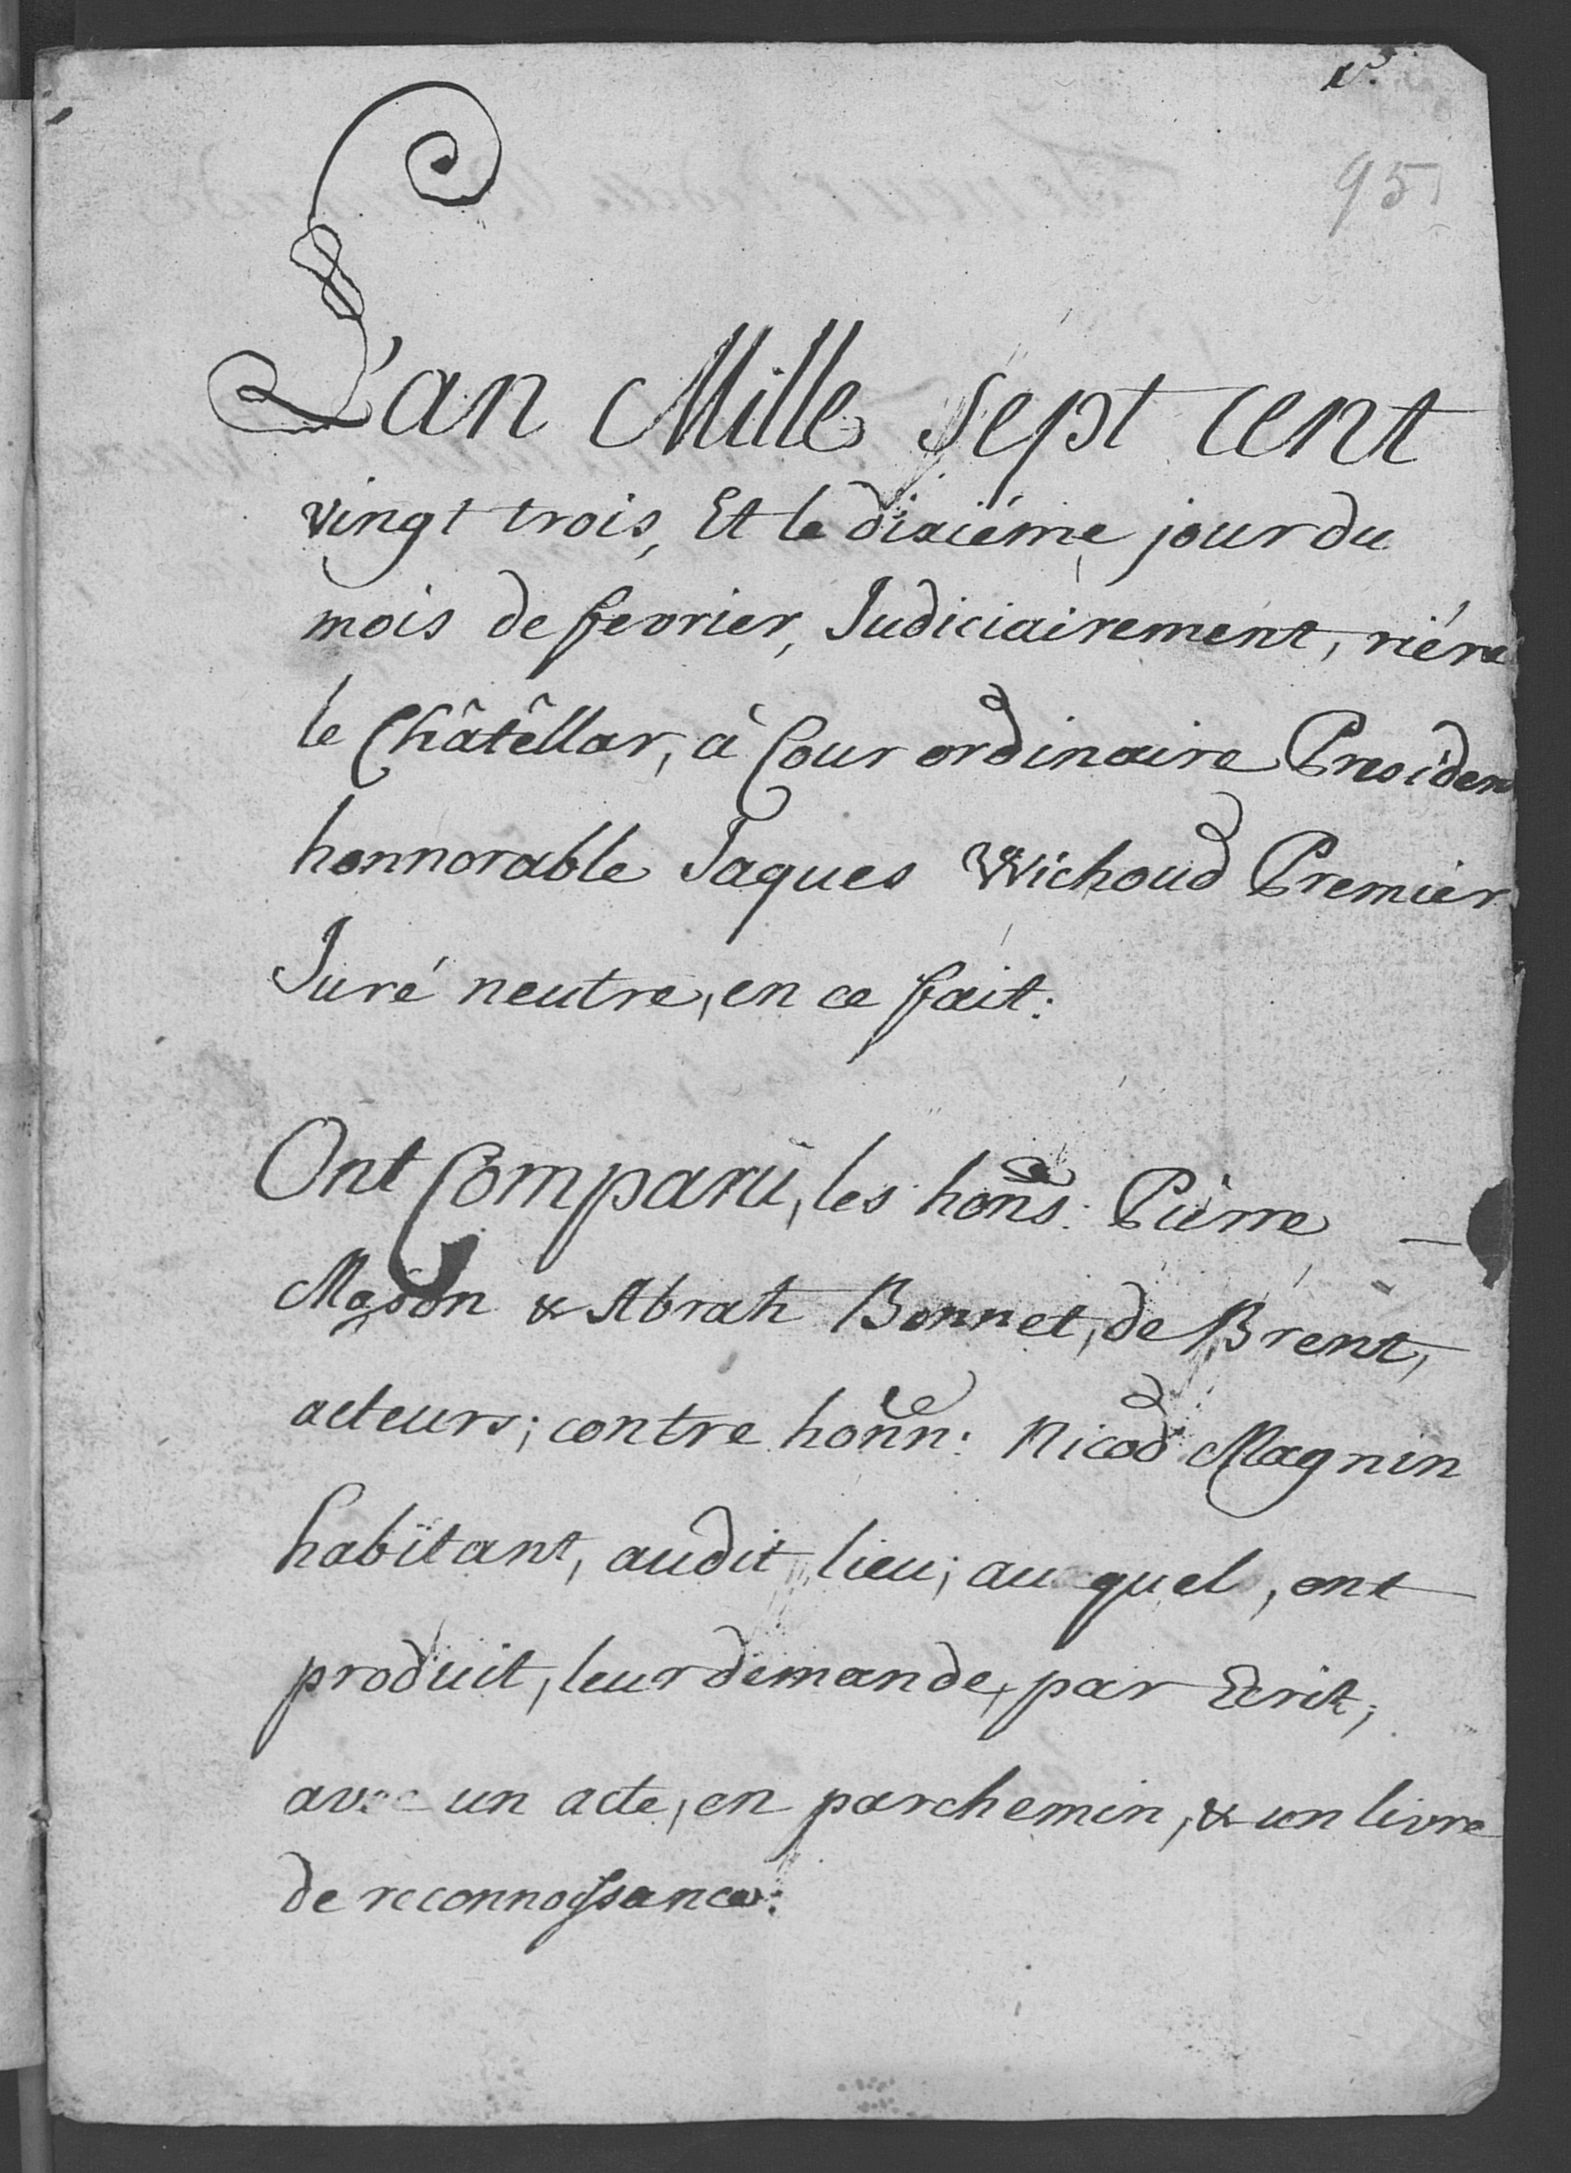 95
L'an Mille sept cent
vingt trois, Et le dixiéme jour du
mois de fevrier, Judiciairement, riére
le Châtêllar, à Cour ordinaire Presiden
honnorable Jaques Wichoud Premier
Juré neutre, en ce fait:
Ont Comparu, les hon̄s: Pierre
Mason & Abrah Bonnet, de Brent,
acteurs; contre hon̄n: Nicod Magnin
habitant, audit lieu; au quel, ont
produit, leur demande, par Ecrit,
avec un acte, en parchemin, & un livre
de reconnoissance: